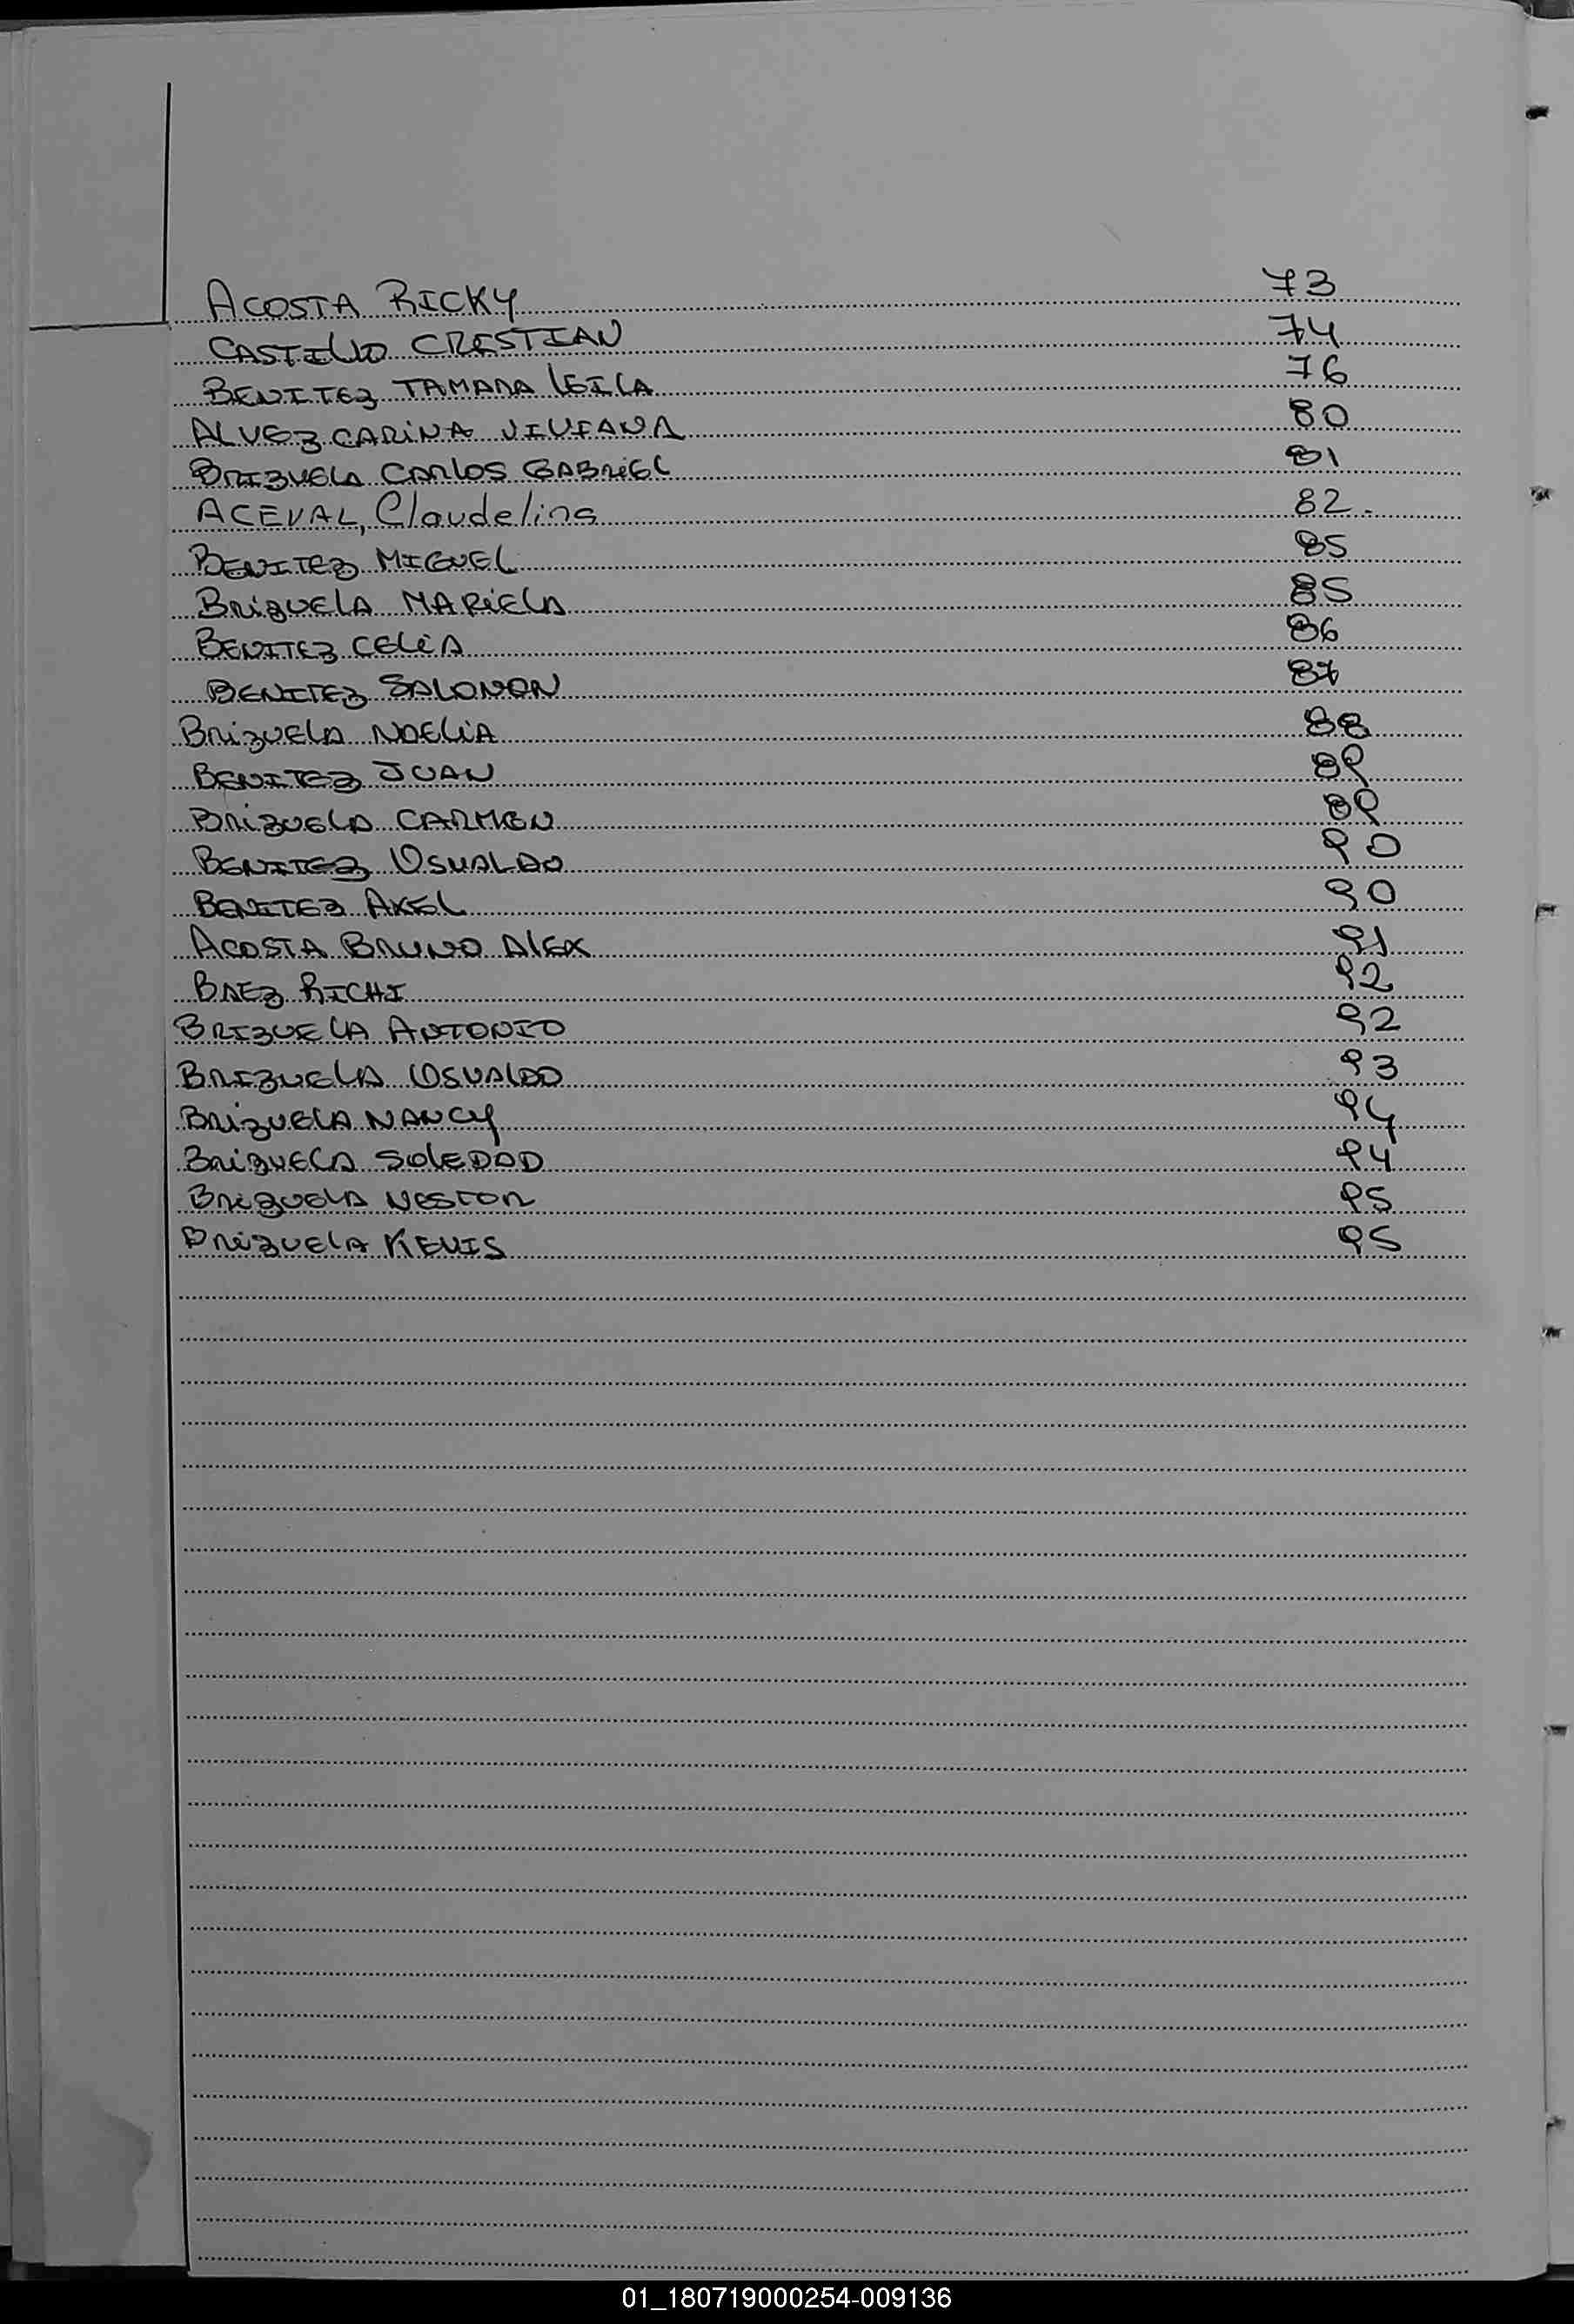 ACOSTA RICKY 73
CASTILLO CRISTIAN 74
BENITEZ TAMARA LEILA 76
ALVEZ CARINA VIVIANA 80
BRIZUELA CARLOS GABRIEL 81
ACEVAL, Claudelina 82.
BENITEZ MIGUEL 85
BRIZUELA MARIELA 85
BENITEZ CELIA 86
BENITEZ SALOMON 87
BRIZUELA NOELIA 88
BENITEZ JUAN 89
BRIZUELA CARMEN 89
BENITEZ OSVALDO 90
BENITEZ AXEL 90
ACOSTA BRUNO ALEX 91
BAEZ RICHI 92
BRIZUELA ANTONIO 92
BRIZUELA OSVALDO 93
BRIZUELA NANCY 94
BRIZUELA SOLEDAD 94
BRIZUELA NESTOR 95
BRIZUELA KEVIS 95
01_180719000254-009136